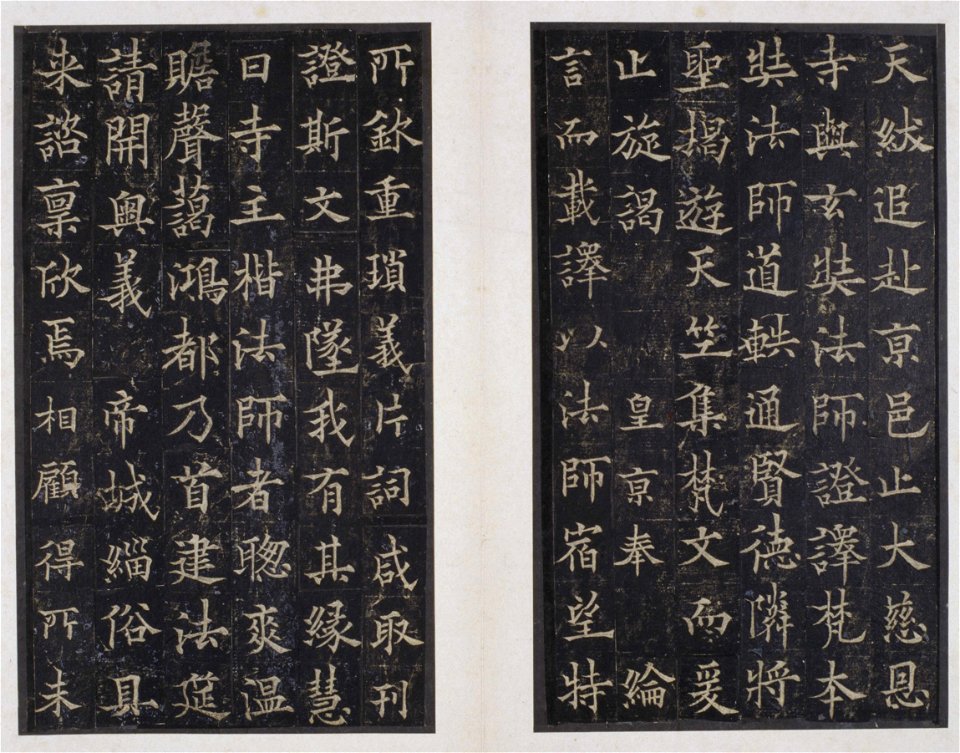 天紱追赴亰邑止大慈恩
寺與玄奘法師證譯梵本
奘法師道軼通賢德隣將
聖揭遊天竺集梵文而爰
止旋謁 皇亰奉 綸
言而載譯以法師宿望特
所欽重瑣義片詞咸取刊
證斯文弗墜我有其緣慧
日寺主楷法師者聰爽温
贍聲藹鴻都乃首建法筵
請開奥義帝城緇俗具
来諮禀欣焉相顧得所未